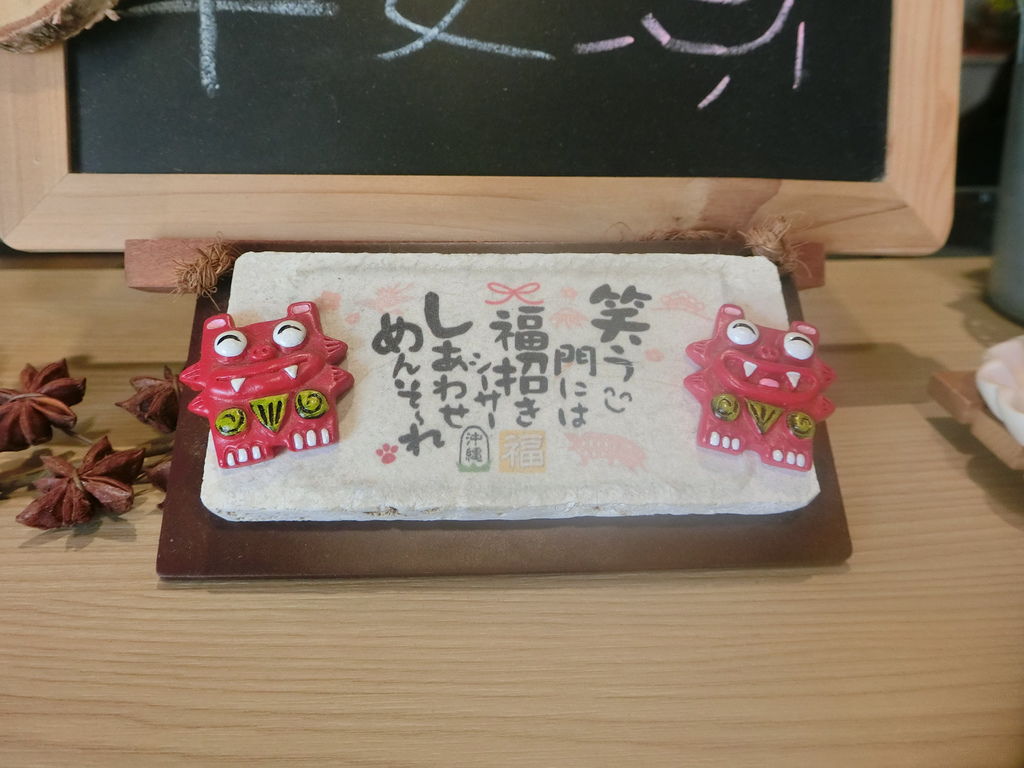 笑う
門には
福招き
シーサー
しあわせ
めんそ〜れ
沖縄
福